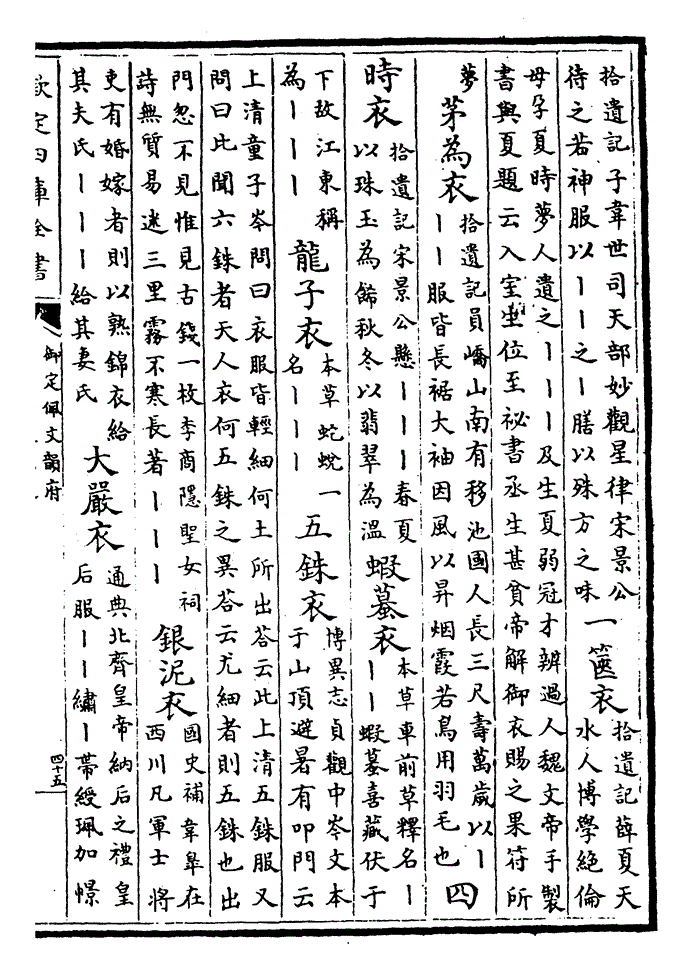 拾遺記子韋世司天部妙觀星律宋景公
待之若神服以丨丨之丨膳以殊方之味
一篋衣
拾遺記薛夏天
水人博學絕倫
母孕夏時夢人遺之丨丨丨及生夏弱冠才辨過人魏文帝手製
書與夏題云入室坐位至祕書丞生甚貧帝解御衣賜之果符所
夢
茅為衣
拾遺記員嶠山南有移池國人長三尺壽萬歲以丨
丨丨服皆長裾大袖因風以昇烟霞若鳥用羽毛也
四
時衣
拾遺記宋景公懸丨丨丨春夏
以珠玉為飾秋冬以翡翠為溫
蝦蟇衣
本草車前草釋名丨
丨丨蝦蟇喜藏伏于
下故江東稱
為丨丨丨
龍子衣
本草蛇蛻一
名丨丨丨
五銖衣
博異志貞觀中岑文本
于山頂避暑有叩門云
上清童子岑問曰衣服皆輕細何土所出荅云此上清五銖服又
問曰此聞六銖者天人衣何五銖之異荅云尤細者則五銖也出
門忽不見惟見古錢一枚李商隱聖女祠
詩無質易迷三里霧不寒長著丨丨丨
銀泥衣
國史補韋臯在
西川凡軍士將
吏有婚嫁者則以熟錦衣給
其夫氏丨丨丨給其妻氏
大嚴衣
通典北齊皇帝納后之禮皇
后服丨丨繡丨帶綬珮加幜
欽定四庫全書
御定佩文韻府
四十五